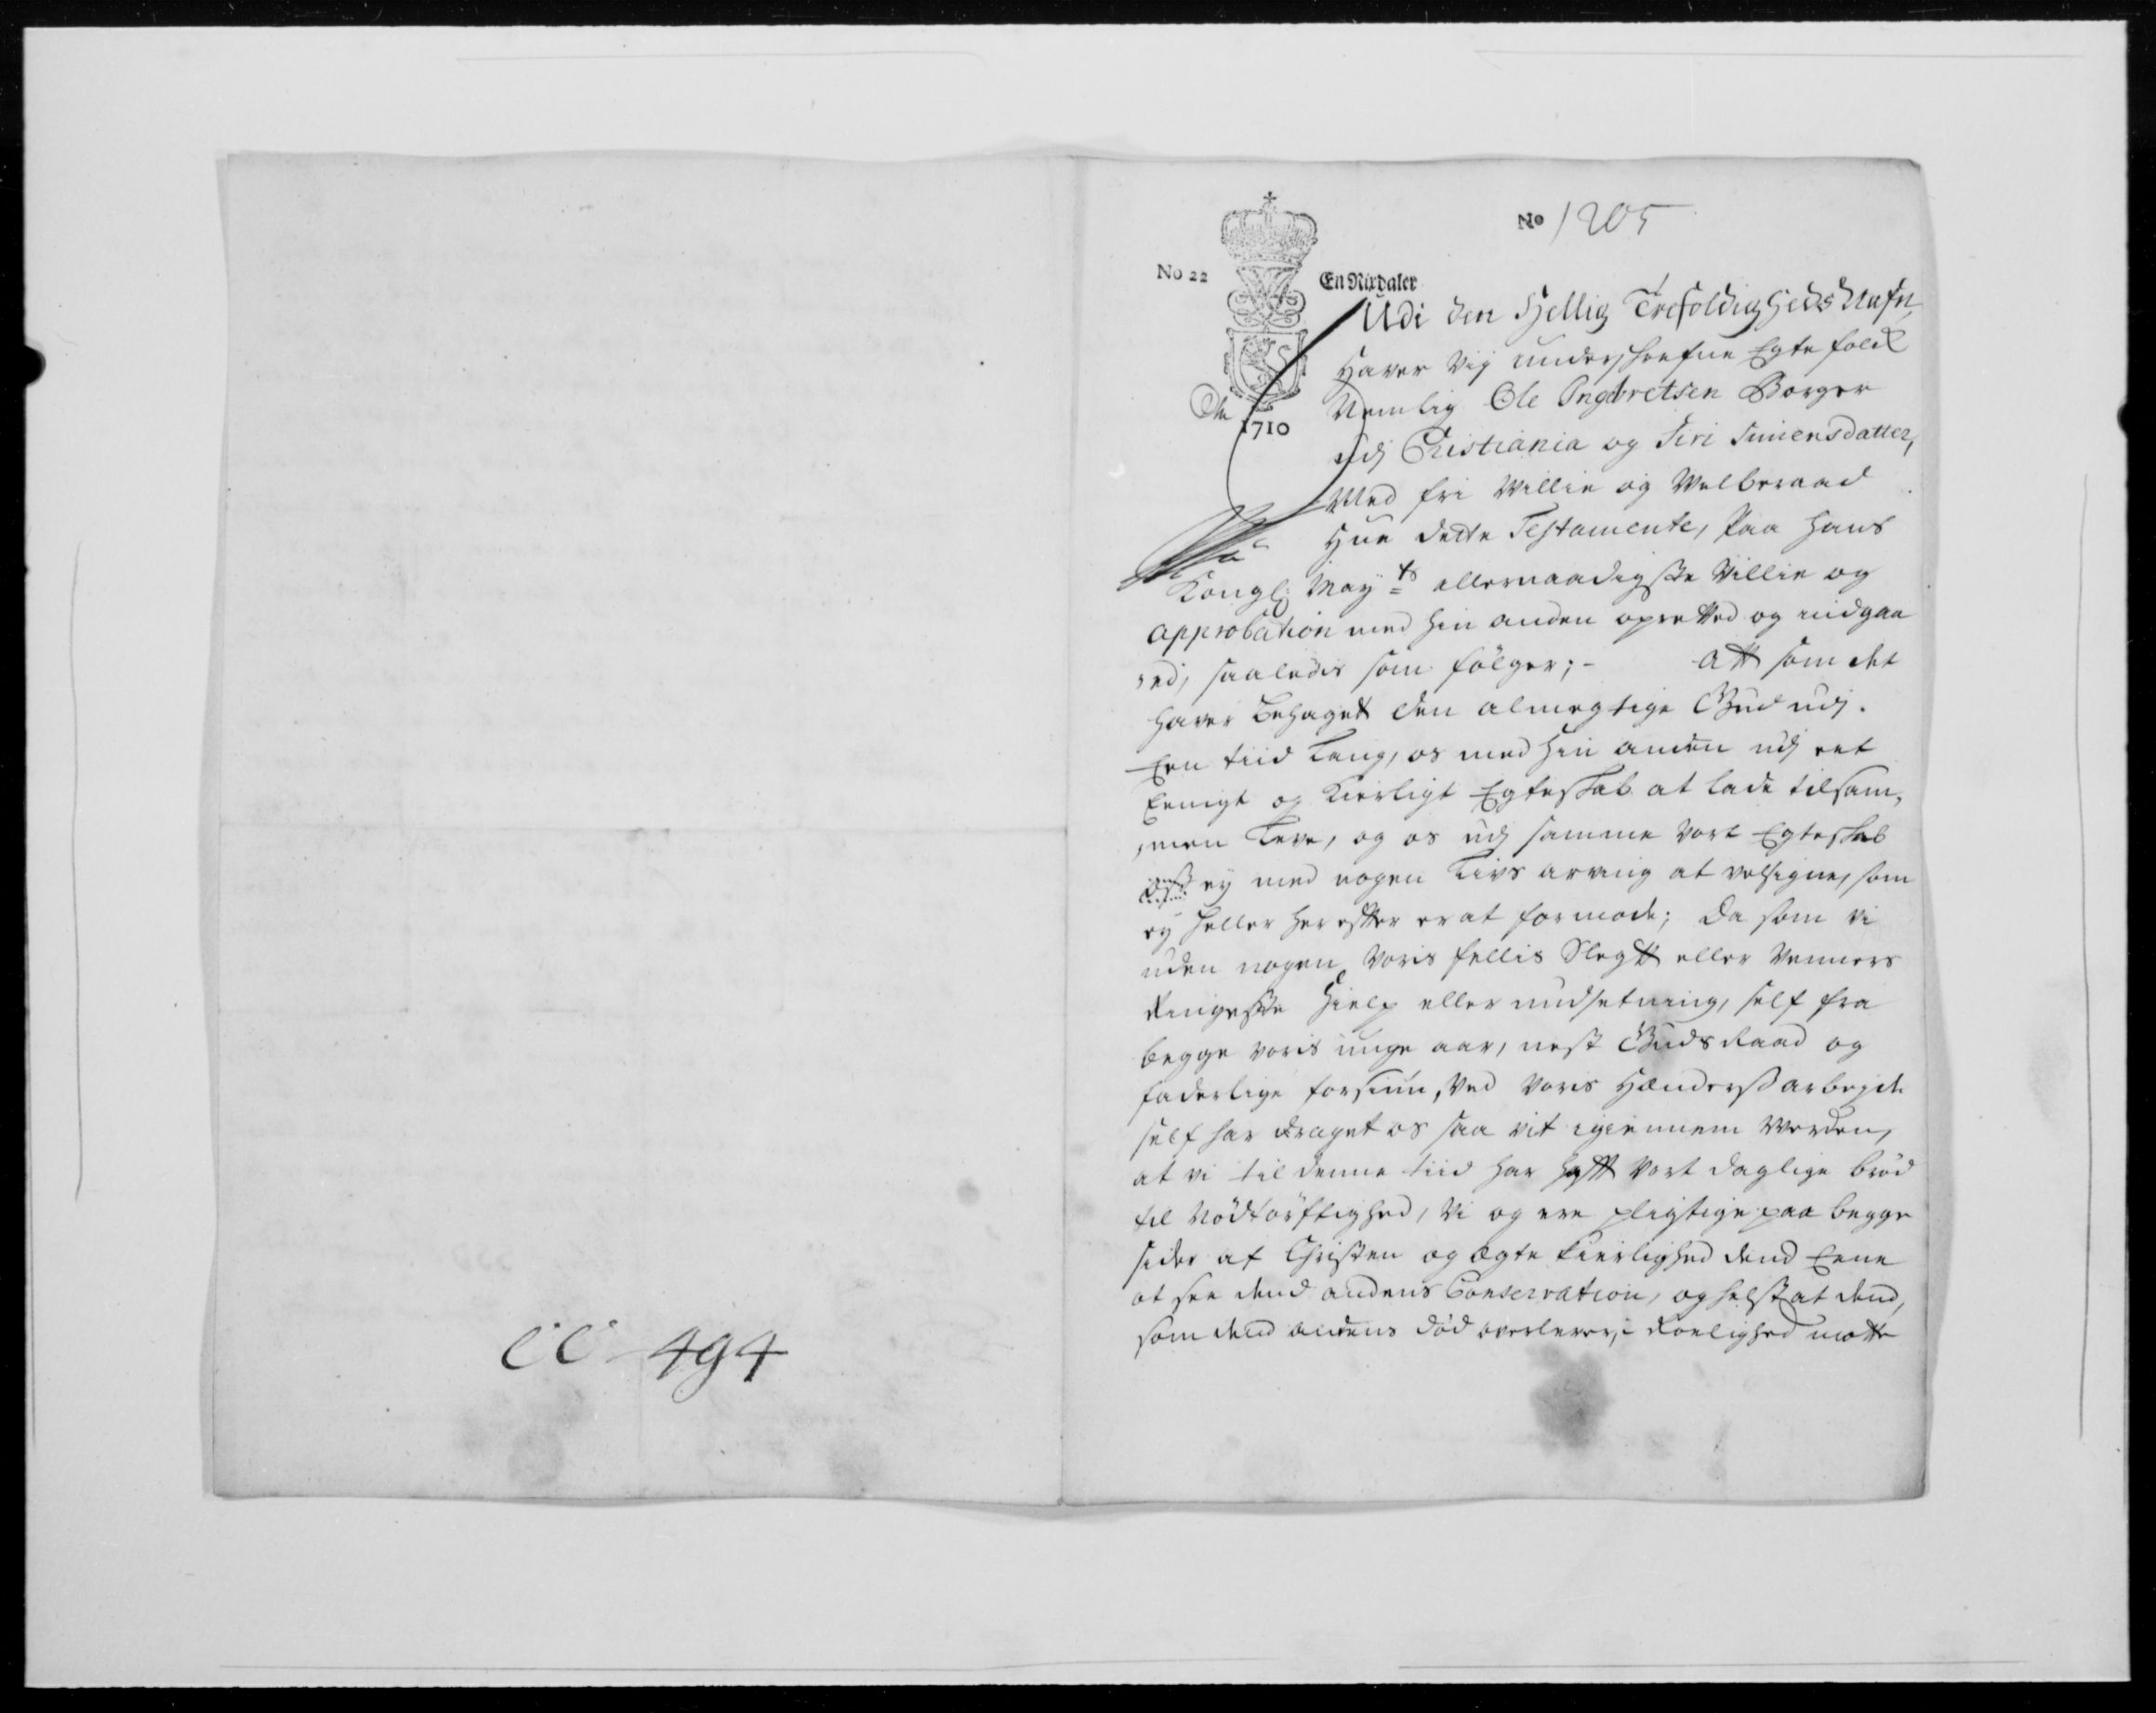 No 1205
No 22
En Rixdaler
1710
Udi den Hellig Trefoldigheds Nafn
Haver Vij underschrefne Egte folck
Nemlig Ole Ingebretsen Borger
udj Christiania og Siri Simensdatter,
Med fri Willie og Velberaad
Hue dette Testamente, Paa Hans
Kongl: May ts allernaadigste Villie og
approbation med hin anden opretted og indgaa
ed, saaledis som følger; - Att som det
haver behaget den almegtige Gud udj.
Een tiid lang, os med hin anden udj eet
Eenigt og Kierligt Egteskab at lade tilsam,
men leve, og os udj samme vort Egteskab
ey med nogen Livs arving at velsigne, som
ey heller herefter er at formode; Da som vi
uden nogen voris fellis Slegtt eller Venners
Ringeste Hielp eller undsetning, self fra
begge voris unge aar, nest Guds Raad og
faderlige forsiun, ved voris Hænderss arbejde
self har draget os saa vit igiennem Verden,
at vi til denne tiid har hafft vort daglige brød
til Nødtørftighed, Vi og ere pligtige paa begge
sider af Christen og ægte kierlighed dend Eene
at see dend andens Conservation, og helst at dend,
som dend andens død overlever, i Roelighed motte
CC 494